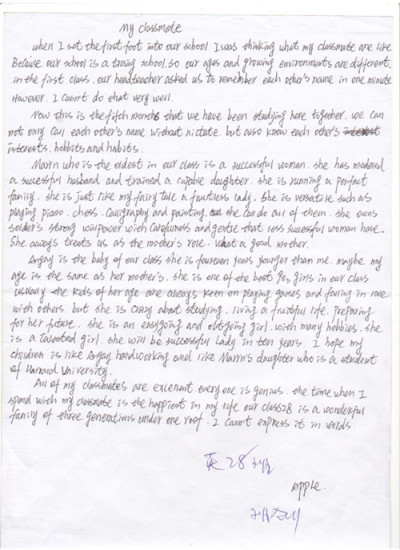 My classmate
when I set the first foot into our school I was thinking what my classmate are like
Because our school is a traing school. so our ages and growing environments are different.
in the first class. our headteacher asked us to remember each other's name in one minute
However. I can't do that very well.
Now this is the fifth month that we have been studying here together. we can
not only call each other's name without but also know each other's
interests, hobbits and habits.
Marrn who is the eldest in our class is a successful woman. she has
a successful husband and trained a capable daughter. she is running a perfect
family. she is just like my fairy tale a lady. She is versatile such as
playing piano. chess. Calligraphy and painting. she can do all of them. she owns
soldier's strong willpower with Carefulness and gentle that less successful woman have.
She always treats us as the mother's role. what a good mother.
Anjay is the baby of our class she is fourteen years younger than me. maybe my
age is the same as her mother's. she is one of the boot 90s girls in our class
usually the kids of her age are always keen on playing games and falling in love
with others. but she is crazy about studying. living a fruitful life. preparing
for her future. she is an easygoing and outgoing girl. with many hobbies. she
is a talented girl. she will be successful lady in ten years. I hope my
children is like Anjay handworking and like Marrn's daughter who is a student
of Harvard University.
All of my classmates are excellent every one is genius. the time when I
spend with my classmate is the happient in my life our class28 is a wonderful
family of three generations under one roof. I cannt express it in words
英28班
Apple.